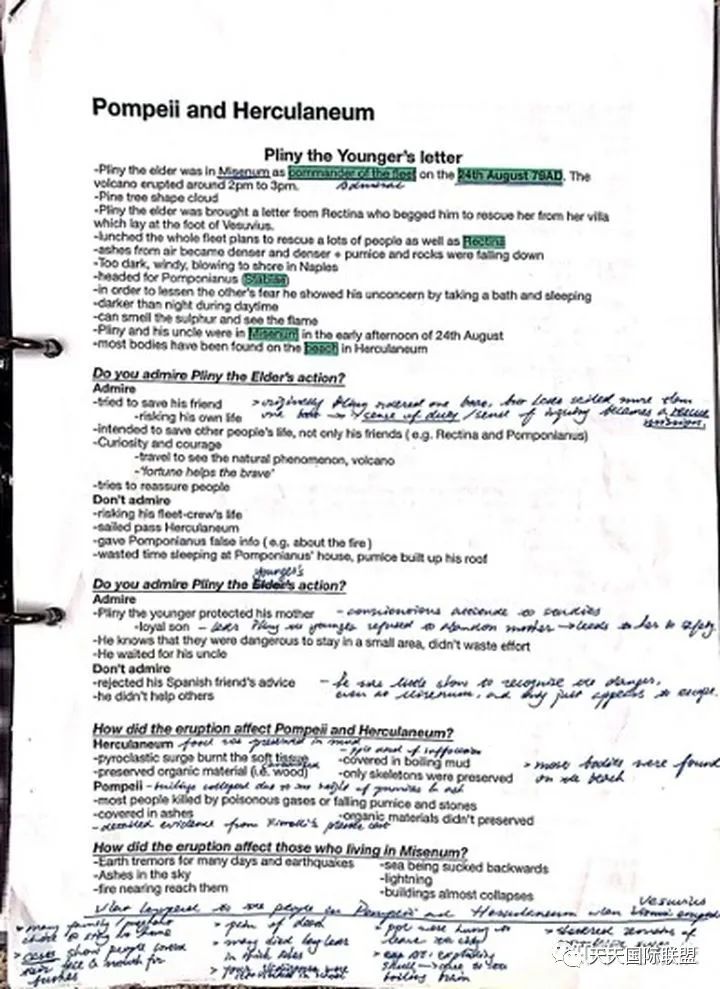 Pompeii and Herculaneum
Pliny the Younger's letter
-Pliny the elder was in Misenum as commander of the fleet on the 24th August 79AD. The
volcano erupted around 2pm to 3pm. admiral
-Pine tree shape cloud
-Pliny the elder was brought a letter from Rectina who begged him to rescue her from her villa
which lay at the foot of Vesuvius.
-lunched the whole fleet plans to rescue a lots of people as well as Rectina
-ashes from air became denser and denser + pumice and rocks were falling down
-Too dark, windy, blowing to shore in Naples
-headed for Pomponianus (Stabiae)
-in order to lessen the other's fear he showed his unconcern by taking a bath and sleeping
-darker than night during daytime
-can smell the sulphur and see the flame
-Pliny and his uncle were in Misenum in the early afternoon of 24th August
-most bodies have been found on the beach in Herculaneum
Do you admire Pliny the Elder's action?
Admire
-tried to save his friend > originally Pliny ordered one boat, but later sailed more than
-risking his own life one boat → sense of duty / sense of inquiry becomes a rescue
mission.
-intended to save other people's life, not only his friends (e.g. Rectina and Pomponianus)
-Curiosity and courage
-travel to see the natural phenomenon, volcano
-"fortune helps the brave"
-tries to reassure people
Don't admire
-risking his fleet-crew's life
-sailed pass Herculaneum
-gave Pomponianus false info (e.g. about the fire)
-wasted time sleeping at Pomponianus' house, pumice built up his roof
younger's
Do you admire Pliny the Elder's action?
Admire
-Pliny the younger protected his mother - conscientious attitude to studies
-loyal son - later Pliny the younger refused to abandon mother → leads to her to safety.
-He knows that they were dangerous to stay in a small area, didn't waste effort
-He waited for his uncle
Don't admire
-rejected his Spanish friend's advice - he was little slow to recognise the danger,
-he didn't help others even at Misenum, and only just appears to escape.
How did the eruption affect Pompeii and Herculaneum?
Herculaneum food was preserved in mud - ppl died of suffocation
-pyroclastic surge burnt the soft tissue -covered in boiling mud > most bodies were found
-preserved organic material (i.e. wood) -only skeletons were preserved on the beach
Pompeii - buildings collapsed due to the weight of pumice & ash
-most people killed by poisonous gases or falling pumice and stones
-covered in ashes -organic materials didn't preserved
- detailed evidence from Fiorelli's plaster cast
How did the eruption affect those who living in Misenum?
-Earth tremors for many days and earthquakes -sea being sucked backwards
-Ashes in the sky -lightning
-fire nearing reach them -buildings almost collapses
What happened to the people in Pompeii and Herculaneum when Vesuvius erupted
> many
chose to stay to home
> cases show people covered
their face & mouth for
> many died
> ppl were trying to
leave the city
boiling
天天国际联盟